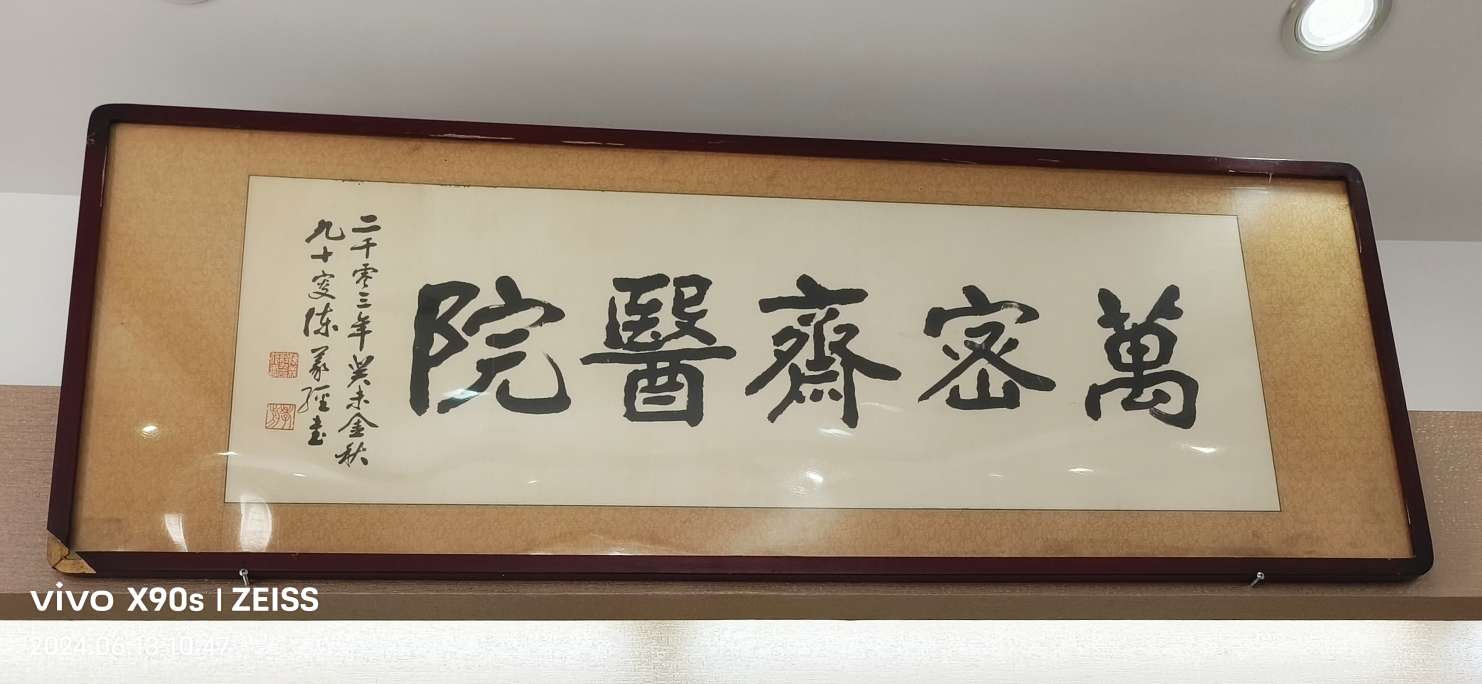 萬密齋醫院
二千零三年癸未金秋
九十叟陈義經书
vivo X90s | ZEISS
2024.06.18 10:47